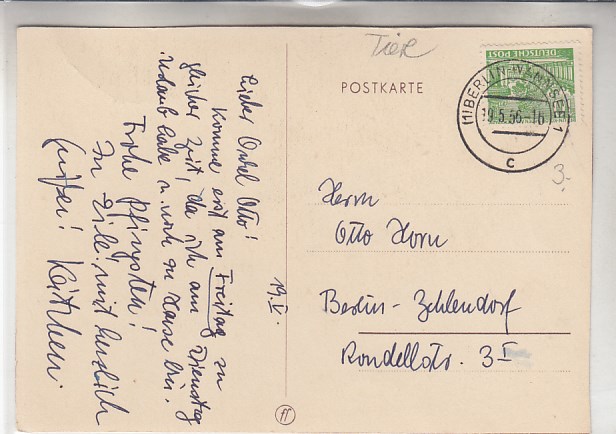 Tiere
POSTKARTE
DEUTSCHE POST
(1) BERLIN-WANNSEE 1
19.5.56.-16
c
3.-
19.V.
Lieber Onkel Otto!
Komme erst am Freitag zu
gleicher Zeit, da ich am Dienstag
Urlaub habe u. noch zu Hause bin.
Frohe Pfingsten!
In Eile mit herzlich
Grüßen! Käthchen.
Herrn
Otto Horn
Berlin-Zehlendorf
Rondellstr. 3I
ff